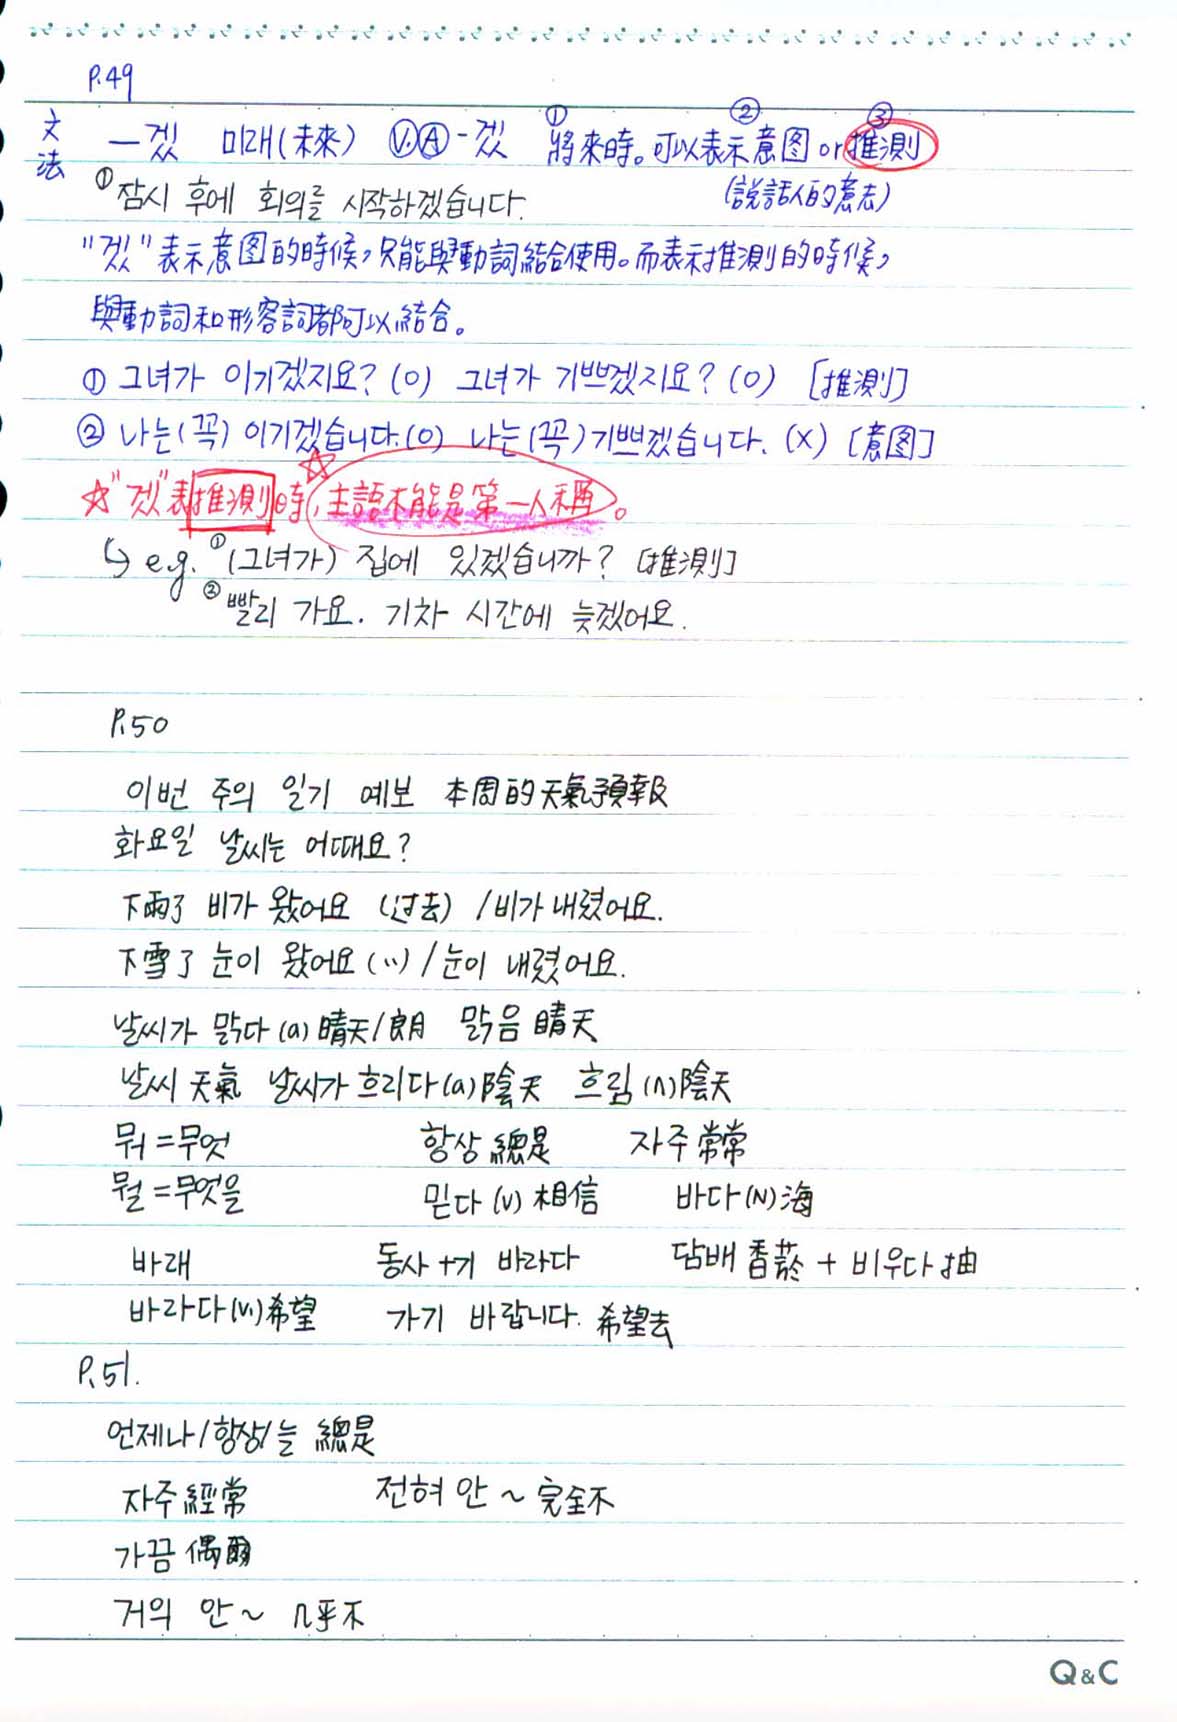 P.49
文法 —겠 미래(未來) V.A -겠 ①將來時。可以表示②意图 or ③推測
①잠시 후에 회의를 시작하겠습니다. (說話人的意志)
"겠"表示意图的時候,只能與動詞結合使用。而表示推測的時候,
與動詞和形容詞都可以結合。
① 그녀가 이기겠지요? (O) 그녀가 기쁘겠지요? (O) [推測]
② 나는(꼭) 이기겠습니다.(O) 나는(꼭)기쁘겠습니다. (X) [意图]
☆"겠"表推測時,☆主語不能是第一人稱。
↳ e.g. ①(그녀가) 집에 있겠습니까? [推測]
②빨리 가요. 기차 시간에 늦겠어요.
P.50
이번 주의 일기 예보 本周的天氣預報
화요일 날씨는 어때요?
下雨了 비가 왔어요 (过去) /비가 내렸어요.
下雪了 눈이 왔어요 (〃) /눈이 내렸어요.
날씨가 맑다 (a) 晴天/朗 맑음 晴天
날씨 天氣 날씨가 흐리다(a)陰天 흐림 (n)陰天
뭐 =무엇 항상 總是 자주 常常
뭘 =무엇을 믿다 (v) 相信 바다 (N) 海
바래 동사 +기 바라다 담배 香菸 + 비우다 抽
바라다(v.)希望 가기 바랍니다. 希望去
P.51.
언제나/항상/늘 總是
자주 經常 전혀 안 ~ 完全不
가끔 偶爾
거의 안 ~ 几乎不
Q&C